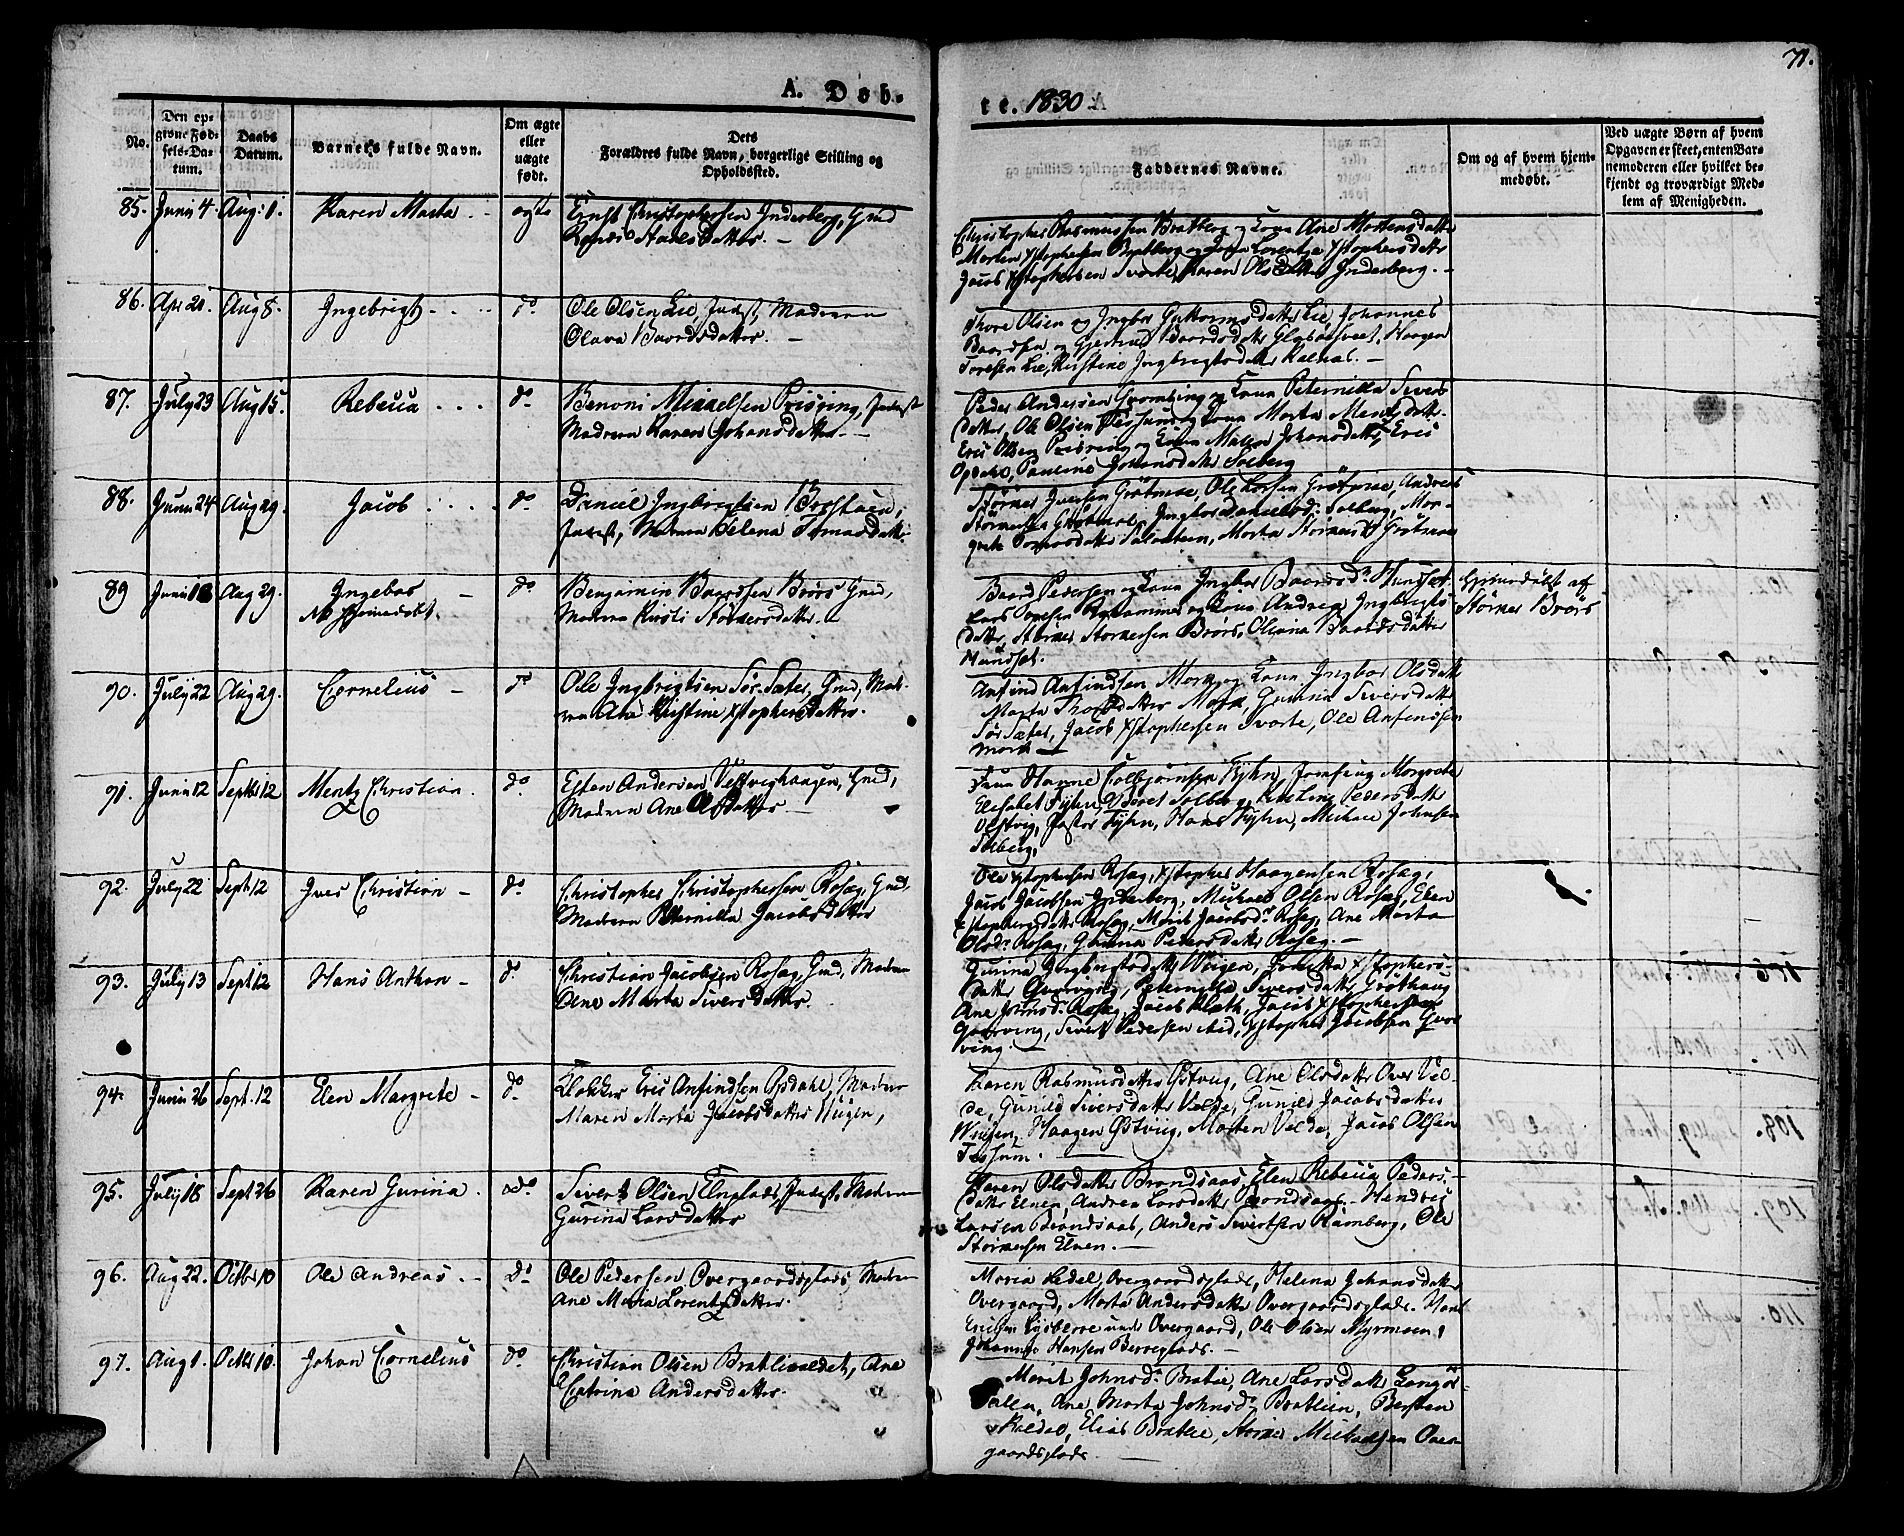 71.
A. Døb-
te. 1830
No.
Den op-
givne Fød-
sels-Da-
tum.
Daabs
Datum.
Barnets fulde Navn.
Om ægte
eller
uægte
født.
Dets
Forældres fulde Navn, borgerlige Stilling og
Opholdssted.
Faddernes Navne.
Om og af hvem hjem-
medøbt.
Ved uægte Børn af hvem
Opgaven er skeet, enten Bar-
nemoderen eller hvilket be-
kjendt og troværdigt Med-
lem af Menigheden.
85. Junii 4 Aug: 1. Karen Marta ægte Ernst Christophersen Inderberg, Gmd
Christopher Rasmussen Bratberg og Kona Ane Mortensdatter
Morten Xstophersen Bratberg og Kona Lorentze Xstophersdatter
Jacob Xstophersen Svorte, Karen Olsdatter Inderberg.
86. Apr 20. Aug 8. Ingebrigt do Ole Olsen Lie, Inderst, Madmm
Olava Baardsdatter.
Thore Olsen og Ingbor Guttormsdatter Lie, Johannes
Baardsen og Gjertrud Baardsdatter, Haagen
Toresen Lie, Kirstine Ingbrigtsdatter
87. July 23 Aug 15. Rebecca do Benoni Mikkelsen Risving, Inderst
Madmm Karen Johansdatter
Peder Andersen og Kona Peternilla Sivers
datter, Ole Olsen Tessum og Kona Marta Mentzdatter
Eric Olsen og Kona Maren Johansdatter, Eric
Opdal, Pauline Johansdatter Solberg
88. Junii 24 Aug 29. Jacob do Daniel Ingbrigtsen Borstuen,
Inderst, Madmm Helena Tomasdatter
Størker Iversen Grötmoe, Ole Larsen Grötmoe, Andreas
Størkersen Grötmoe, Ingbor Danielsd: Solberg, Mar-
grete Tomasdatter, Marta Størkersd Grötmoe
89 Junii 18 Aug 29. Ingebor do Benjamin Baardsen Brörs Gmd,
NB Hjemmedøbt. Madmm Kirsti Størkersdatter.
Baard Pedersen og Kona Ingbor Baardsdr Hundset
Lars og Kona Andrea Ingbrigts
datter, Størker Størkersen Brörs, Olivina Baardsdatter
Hundset.
Hjemmedøbt af
Størker Brörs
90. July 22 Aug 29. Cornelius do Ole Ingbrigtsen Sör Sæter, Gmd, Mad-
mm Ane Kirstine Xstophersdatter.
Anfind Anfindsen Mork og Kona Ingbor Olsdatter
Marta Thoresdatter Mork, Gunnild Siversdatter
Sör Sæter, Jacob Xstophersen Svorte, Ole Anfindsen
Mork
91. Junii 12 Septbr 12 Mentz Christian. do Esten Andersen Vestvighaugen, Gmd,
Madmm Ane Olsdatter
Fru Hanne Colbjørnsen Fyhn, Jomfrue Margrete
Elisabet Fyhn, Beret Solberg, Pedersdatter
Vestvig, Pastor Fyhn, Hans Fyhn, Mickael Johnsen
Solberg.
92. July 22 Sept. 12 Iver Christian do Christopher Christophersen Rosæg, Gmd,
Madmm Peternilla Jacobsdatter
Ole Xstophersen Rosæg, Xstopher Haagensen Rosæg,
Jacob Jacobsen Inderberg, Mickael Olsen Rosæg, Elen
Xstophersdatter Rosæg, Marit Jacobsdr Rosæg, Ane Marta
Olsdr Rosæg, Gurina Pedersdatter Rosæg.
93. July 13 Sept 12 Hans Anthon do Christian Jacobsen Rosæg, Gmd, Madmm
Ane Marta Siversdatter
Gurina Ingbrigtsdatter Weigen, Xstophers-
datter Qvarving, Peternilla Siversdatter Grøthaug
Ane Johnsdr Rosæg, Jacob Kleth, Jacob Xstophersen
Qvarving, Sivert Pedersen ibid, Xstopher Jacobsen Qvar
ving.
94. Junii 26 Sept. 12 Elen Margrete do Klokker Eric Anfindsen Opdahl, Madmm
Maren Marta Jacobsdatter Weigen,
Karen Rasmusdatter Østvig, Ane Olsdatter Over Vel-
de, Gunild Siversdatter Velde, Gunild Jacobsdatter
Weigen, Haagen Østvig, Morten Velde, Jacob Olsen
Tessum.
95. July 18 Sept 26 Karen Gurina do Sivert Olsen Elnplads, Inderst, Madmm
Gurina Larsdatter
Karen Olsdatter Brandsaas, Elen Rebecca Peders-
datter Elnen, Andrea Larsdatter Brandsaas, Hendric
Larsen Brandsaas, Anders Sivertsen Ramberg, Ole
Størkersen Elnen.
96. Aug 22. Octbr 10 Ole Andreas do Ole Pedersen Overgaardsplads, Madmm
Ane Maria Lorentzdatter.
Maria Ledel Overgaardsplads, Helena Johansdatter
Overgaard, Marta Andersdatter Overgaardsplads, Hans
Ericsen Lysberre under Overgaard, Ole Olsen Myrmoen,
Johannes Hansen Berreplads.
97. Aug 1. Octbr 10. Johan Cornelius do Christian Olsen Bratlivaldet, Ane
Catrina Andersdatter.
Marit Johnsdr Bratlie, Ane Larsdatter Langör-
Ane Marta Johnsdr Bratlien, Bersten
Elias Bratlie, Størker Mickaelsen Over
gaardsplads.